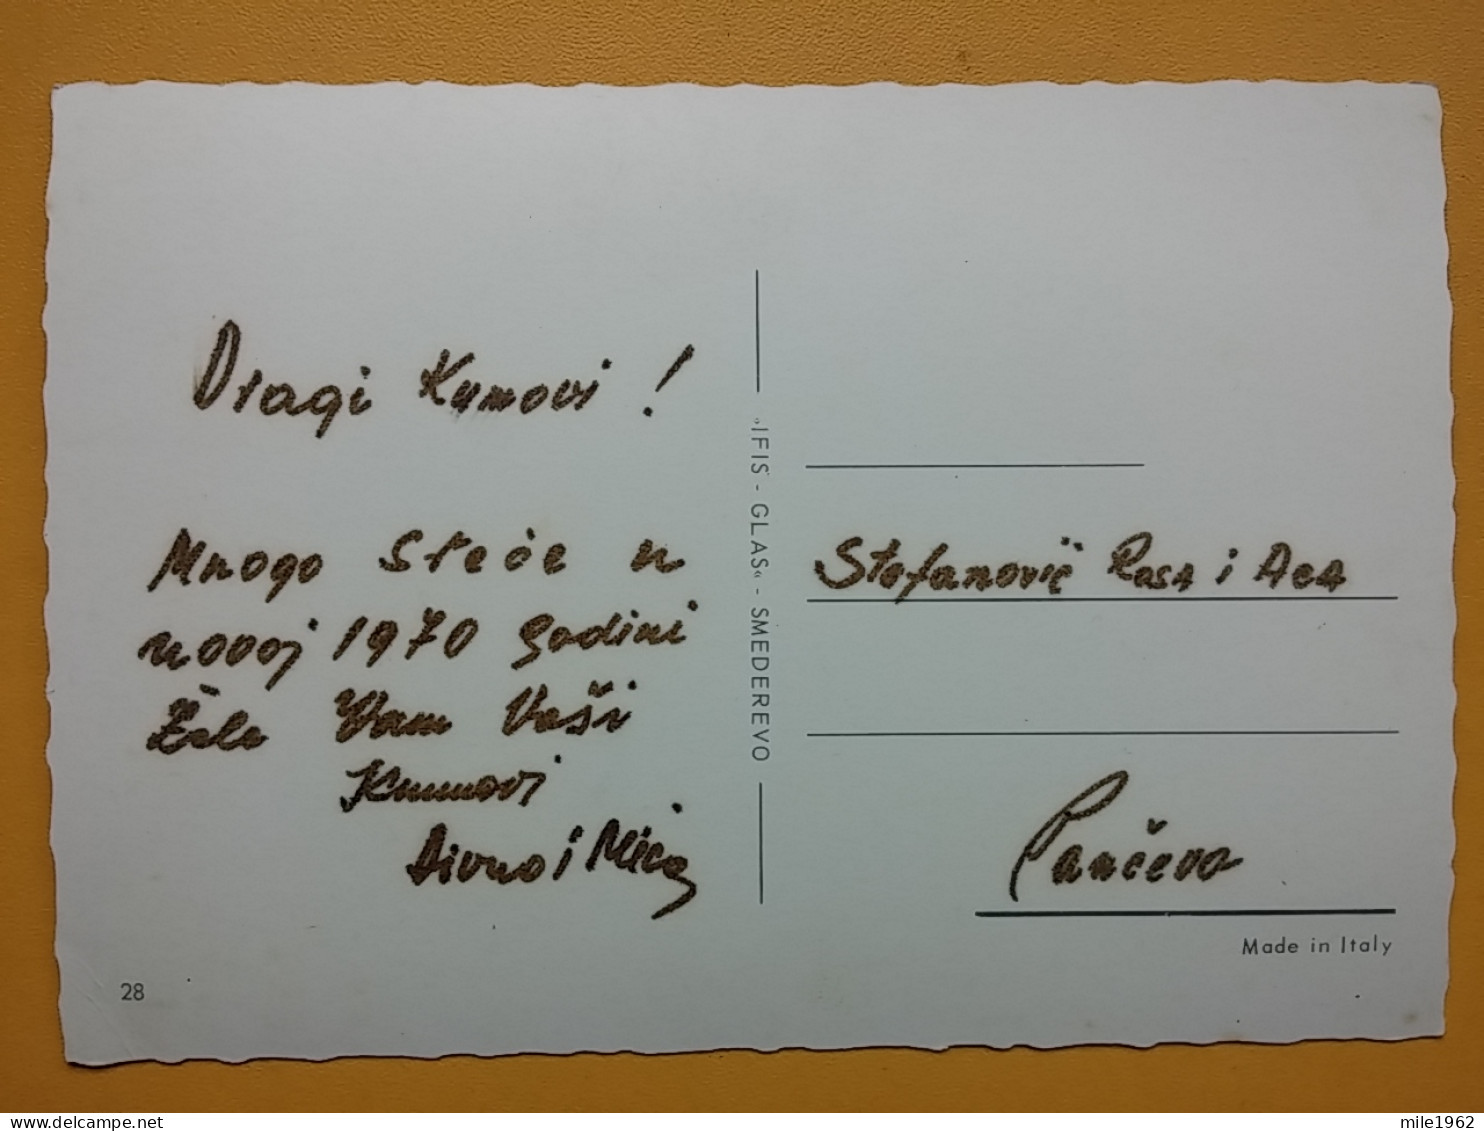 Dragi Kumovi !
Mnogo sreće u
novoj 1970 godini
Žele Vam Vaši
Kumovi
Divna i Mica
28
»IFIS - GLAS« - SMEDEREVO
Stefanović Rosa i Aca
Pančevo
Made in Italy
mile1962